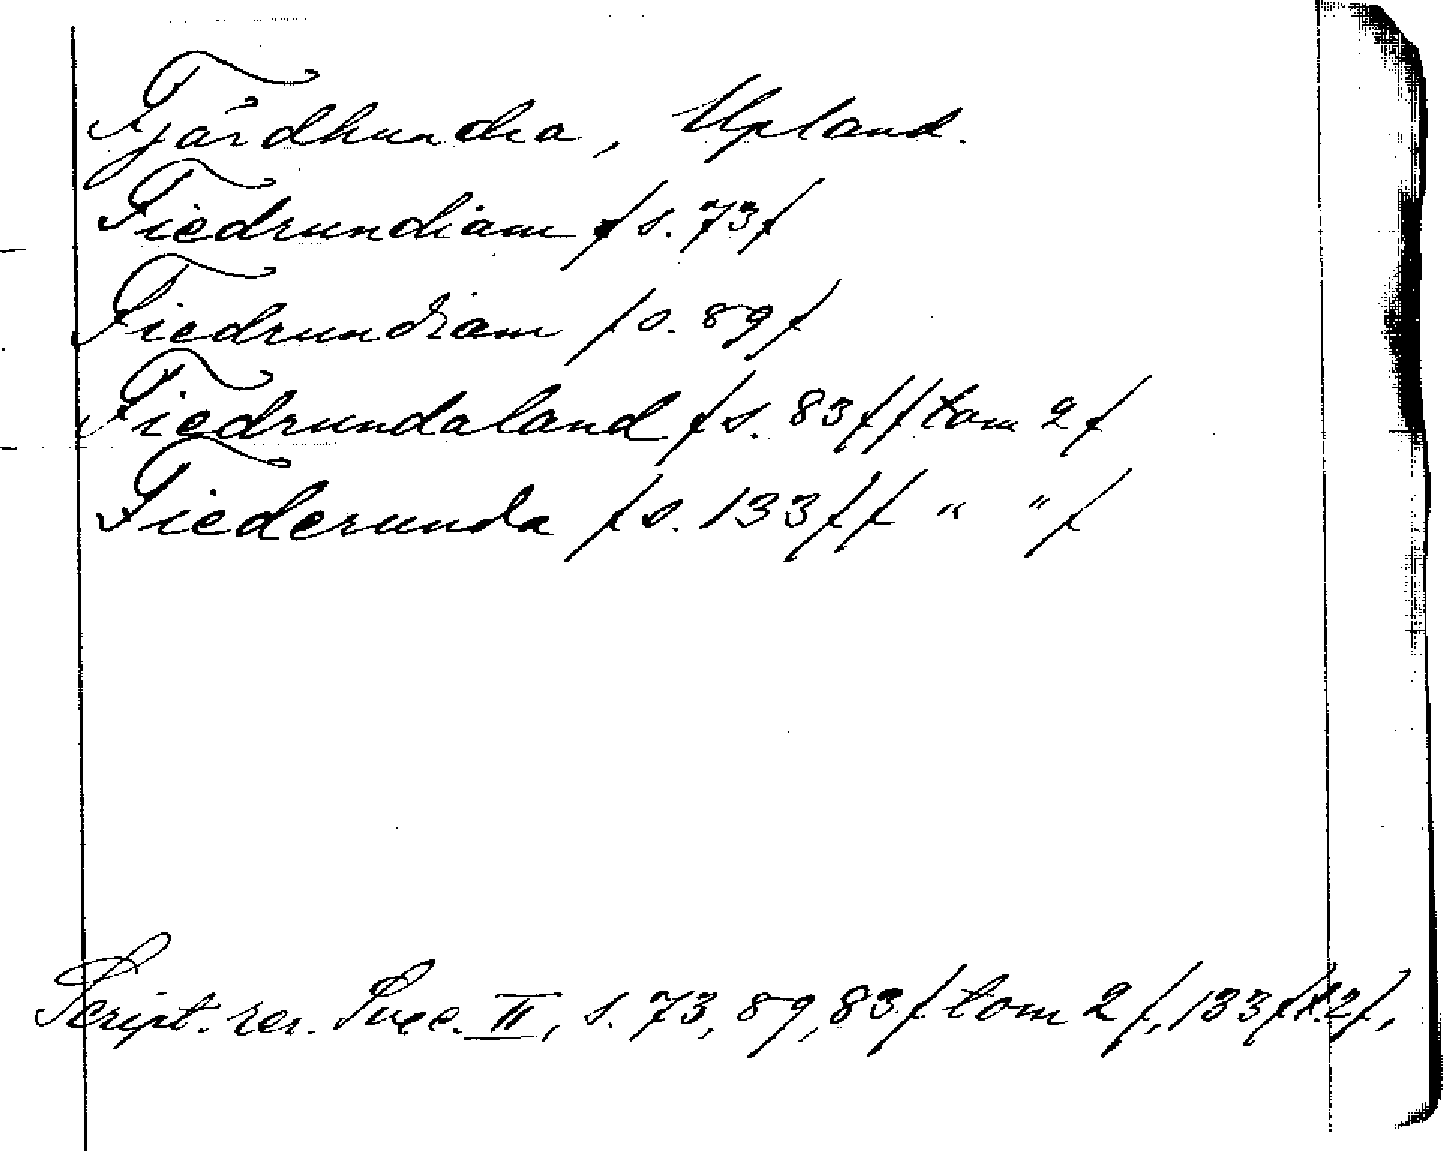 Fjärdhundra, Upland.
Fiedrundiam /s. 73/
Fiedrundiam /s. 89/
Fiedrundaland /s. 83//tom 2/
Fiederunda /s. 133// " "/
Script. rer. Svec. II, s. 73, 89, 83/tom 2/, 133/t.2/,